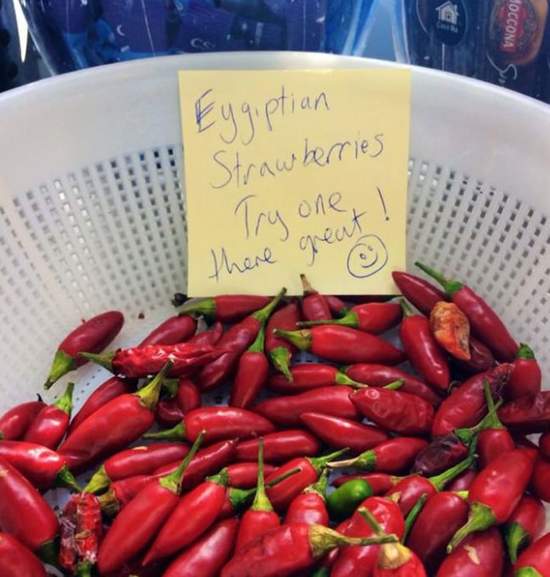 MOCCONA
Eygiptian
Strawberries
Try one
there great!